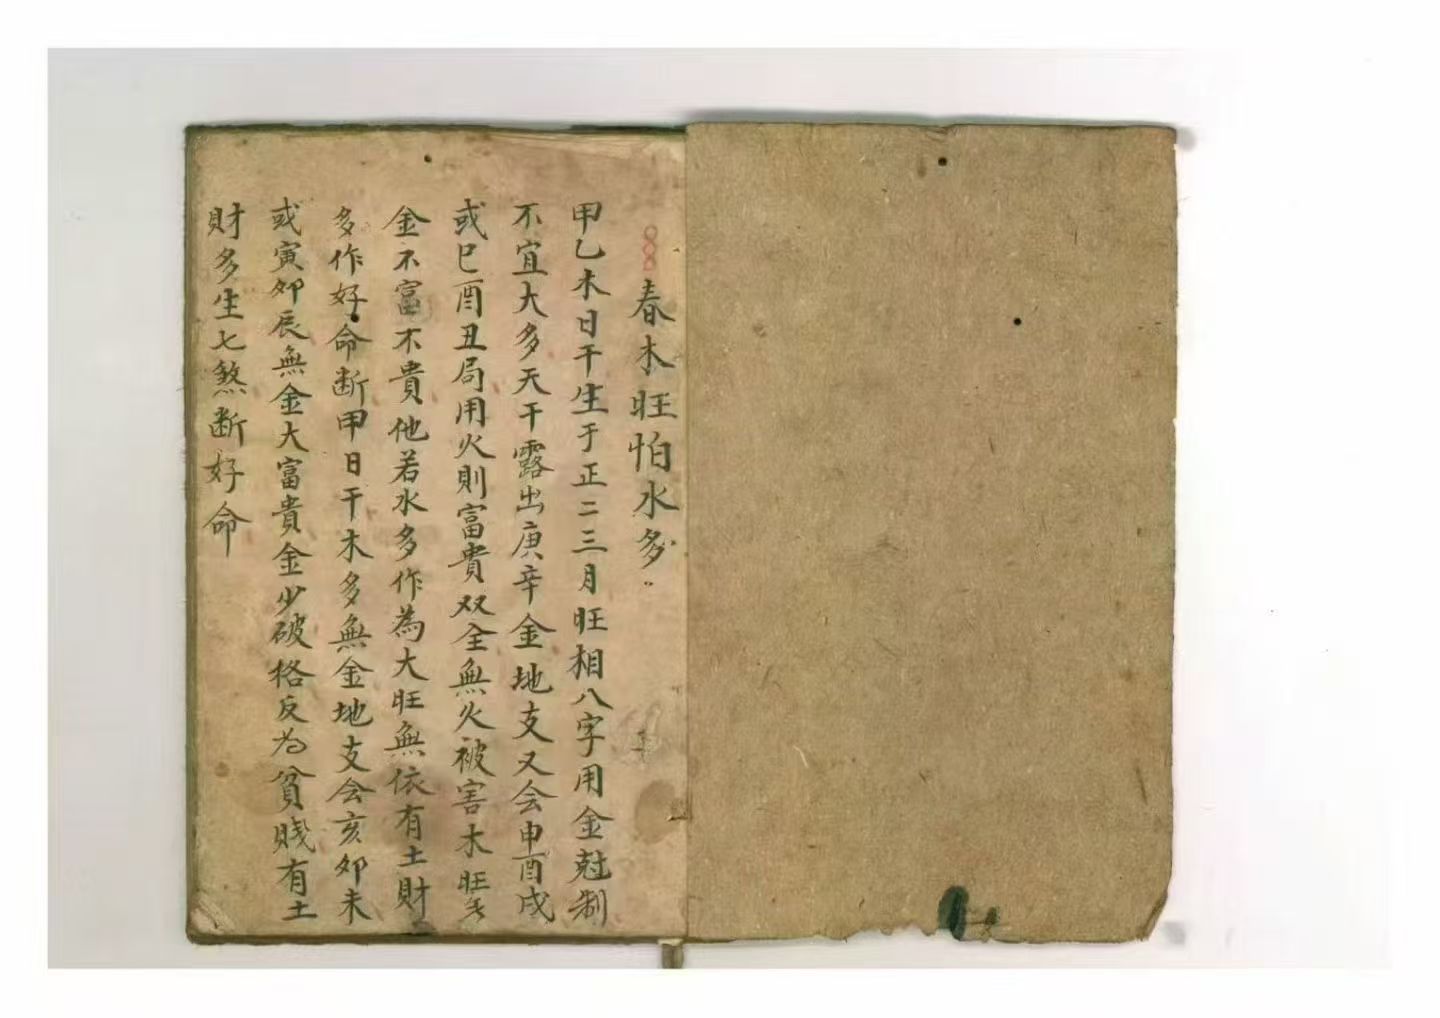 春木旺怕水多
甲乙木日干生于正二三月旺相八字用金尅制
不宜大多天干露出庚辛金地支又会申酉戌
或巳酉丑局用火則富貴双全無火被害木旺冬
金不富不貴他若水多作為大旺無依有土財
多作好命断甲日干木多無金地支会亥卯未
或寅卯辰無金大富貴金少破格反为貧賤有土
財多生七煞断好命